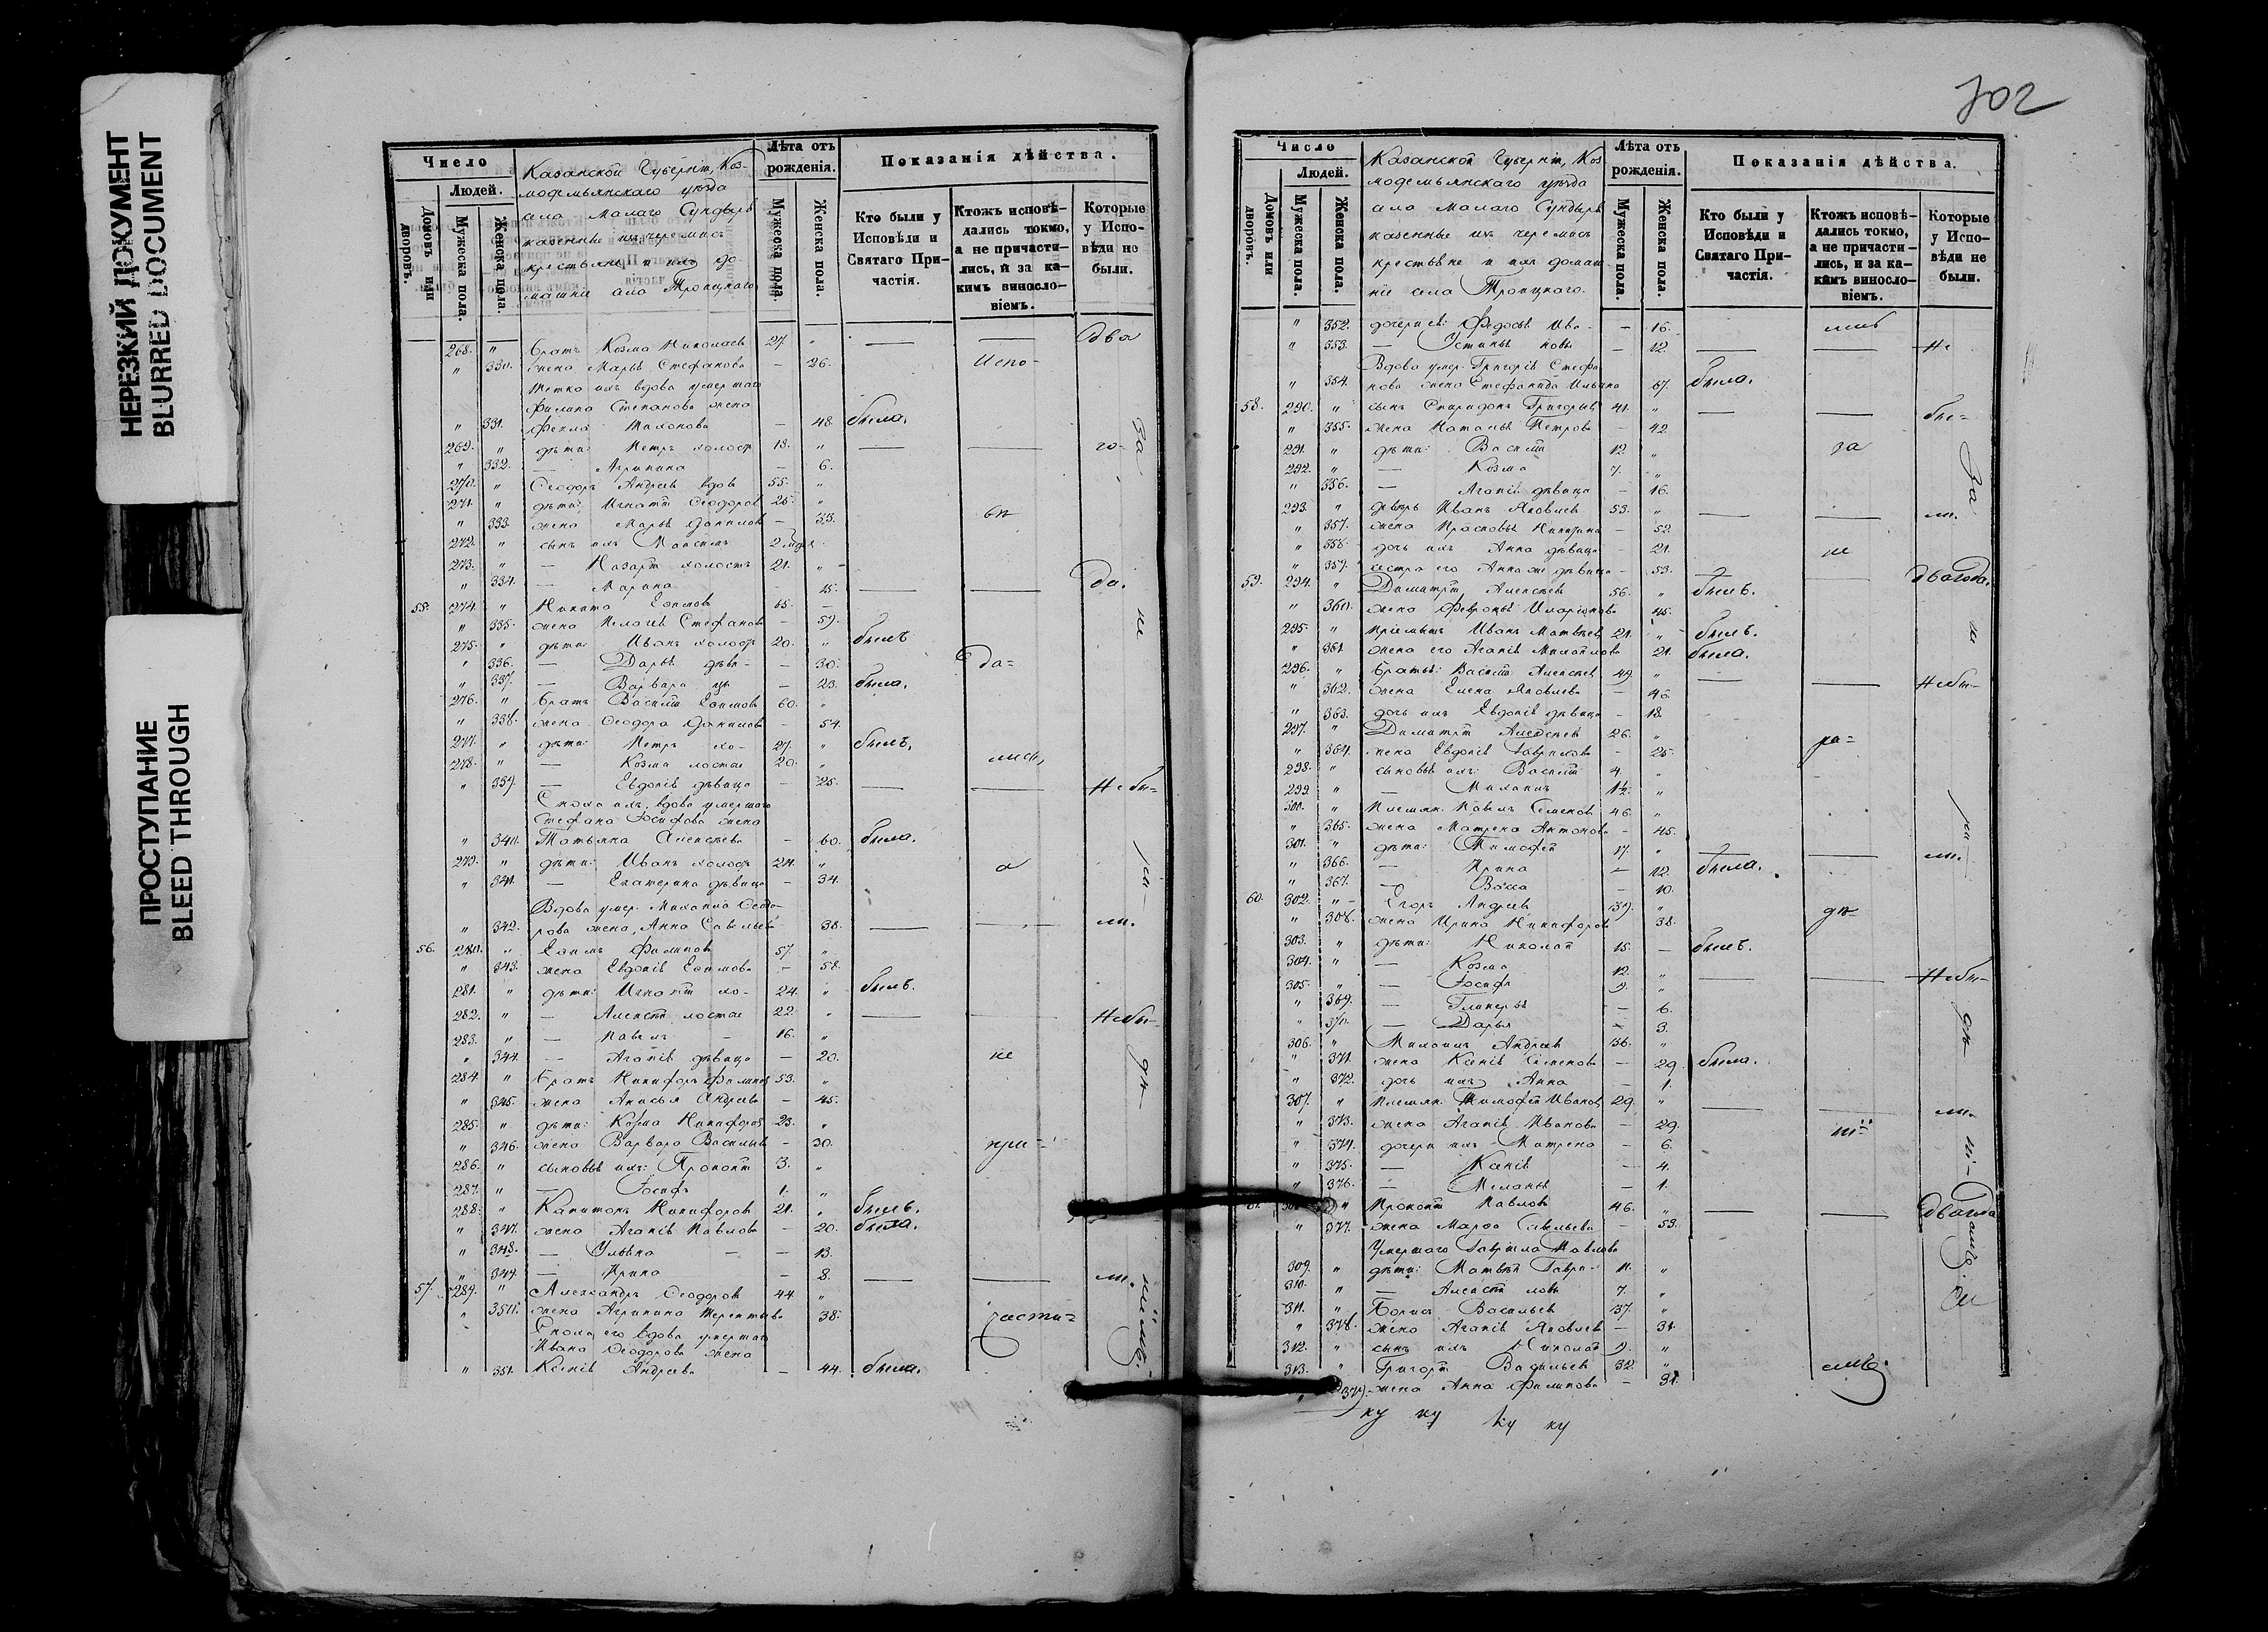 НЕРЕЗКИЙ ДОКУМЕНТ
BLURRED DOCUMENT
ПРОСТУПАНИЕ
BLEED THROUGH
Число
Людей.
Домовъ или дворовъ.
Мужеска пола.
Женска пола.
Казанской Губерніи, Коз-
модемьянскаго уѣзда
села Малаго Сундыря
казенные изъ черемисъ
крестьяне и ихъ до-
машніе села Троицкаго
Лѣта отъ рожденія.
Мужеска пола.
Женска пола.
Показанія дѣйства.
Кто были у Исповѣди и Святаго При-частія.
Ктожъ исповѣ-дались токмо, а не причасти-лись, и за ка-кимъ винослo-віемъ.
Которые у Испо-вѣди не были.
268. " братъ Козма Николаевъ 27. " — — два
" 330. жена Марья Стефанова — 26. Испо-
Тетка ихъ вдова умершаго
Филипа Степанова жена
" 331. Фекла — 48. была.
269. " дѣти: Петръ холостъ 18. " — — го-
" 332. — Агрипина — 6.
270. " Ѳеодоръ Андреевъ вдовъ 55. "
271. " дѣти: Игнатій Ѳеодоровъ 25. "
" 333. жена Марья Данилова — 33. вѣ
272. " сынъ ихъ Максимъ 2 нед.
273. " — Назарій холостъ 21. "
" 334. — Марина 15. — — да.
55. 274. " Никита Ефимовъ 65. —
" 335. жена Пелагея Стефанова — 59.
275. " дѣти: Иванъ холостъ 20. " былъ
" 336. — Дарья дѣви- — 30. да-
" 337. — Варвара цы — 23. была.
276. " братъ Василій Ефимовъ 60. "
" 338. жена Ѳеодора Данилова — 54.
277. " дѣти: Петръ хо- 27. " былъ.
278. " — Козма лостые 20. " лись,
" 339. — Евдокія дѣвица — 25. — — Небы-
Сноха ихъ, вдова умершаго
Стефана Іосифова жена
" 340. Татьяна Алексѣева — 60. была.
279. " дѣти: Иванъ холостъ 24. " а
" 341. — Екатерина дѣвица — 34.
Вдова умер. Михаила Ѳеодо-
" 342. рова жена, Анна Савельева 38. — — ли.
56. 280. " Ефимъ Филиповъ 57. "
" 343. жена Евдокія Ефимова — 58.
281. " дѣти: Игнатій хо- 24. " былъ.
282. " — Алексѣй лостые 22. " — — Небы-
283. " — Павелъ — 16. "
" 344. — Агапія дѣвица — 20. не
284. " братъ Никифоръ Филиповъ 53. "
" 345. жена Анисья Андреева — 45.
285. " дѣти: Козма Никифоровъ 23. "
" 346. жена Варвара Васильева — 30. при-
286. " сыновья ихъ: Прокопій 3. "
287. " — Іосифъ 1. "
288. " Капитонъ Никифоровъ 21. " былъ.
" 347. жена Агапія Павлова — 20. была.
" 348. — Ульяна — — 13.
" 349. — Ирина — 8. — — ли.
57. 289. " Александръ Ѳеодоровъ 44. "
" 350. жена Агрипина Терентьева 38. части-
Сноха его вдова умершаго
Ивана Ѳеодорова жена
" 351. Ксенія Андреева — 44. была.
702
Число
Людей.
Домовъ или дворовъ.
Мужеска пола.
Женска пола.
Казанской Губерніи, Коз-
модемьянскаго уѣзда
села Малаго Сундыря
казенные изъ черемисъ
крестьяне и ихъ домаш-
ніе села Троицкаго.
Лѣта отъ рожденія.
Мужеска пола.
Женска пола.
Показанія дѣйства.
Кто были у Исповѣди и Святаго При-частія.
Ктожъ исповѣ-дались токмо, а не причасти-лись, и за ка-кимъ винослo-віемъ.
Которые у Испо-вѣди не были.
" 352. дочери ея: Федосья Ива- — 16.
" 353. — Устинья новы — 12. — — Не
Вдова умер. Григорія Стефа-
" 354. нова жена Стефанида Ильина 67. была.
58. 290. " сынъ Спиридонъ Григорьевъ 41. " — — бы-
" 355. жена Наталья Петрова — 42
291. " дѣти: Василій 12 " за
292. " — Козма 7. "
" 356. — Агапія дѣвица — 16.
293. " Иванъ Яковлевъ 53. " — — ли.
" 357. жена Прасковья Никитина — 52.
" 358. дочь ихъ Анна дѣвица — 21. не
" 359. сестра его Анна же дѣвица — 53.
59. 294. " Димитрій Алексѣевъ 56. " былъ. — два года.
" 360. жена Февронья Иларіонова 45.
295. " пріемышъ Иванъ Матвѣевъ 21. " былъ.
" 361. жена его Агапія Михайлова 21. была.
296. " братья: Василій Алексѣевъ 49. " — — Небы-
" 362. жена Елена Яковлева — 46.
" 363. дочь ихъ Евдокія дѣвица — 18.
297. " Димитрій Алексѣевъ 26. " ра-
" 364. жена Евдокія Гаврилова — 25.
298. " сыновья ихъ: Василій 4. "
299. " — Михаилъ 1½. "
300. " племян. Павелъ Семеновъ 46. "
" 365. жена Матрена Антонова — 45.
301. " дѣти: Тимофей 17. " — — ли.
" 366. — Ирина — 12. была.
" 367. — Васса — 10.
60. 302. " Егоръ Андреевъ 39. " дѣ-
" 368. жена Ирина Никифорова 38.
303. " дѣти: Николай 15. — былъ.
304. " — Козма 12. " — — Небы-
305. " — Іосифъ 9. "
" 369. — Гликерья — 6.
" 370. — Дарья — 3.
306. " Михаилъ Андреевъ 36. "
" 371. жена Ксенія Семенова — 29. была.
" 372. дочь ихъ Анна — 1.
307. " племян. Тимофей Ивановъ 29. " — — ли.
" 373. жена Агапія Иванова — 29.
" 374. дочери ихъ Матрена — 6.
" 375. — Ксенія — 4.
" 376. — Меланья — 1.
" Прокопій Павловъ 46. " — — два года
" 377. жена Марфа Савельева — 53.
Умершаго Гаврила Павлова
309. " дѣти: Матвѣй Гаври- 11. "
310. " — Алексѣй ловы 7. "
311. " Борисъ Васильевъ 37. "
" 378. жена Агапія Яковлева — 31.
312. " сынъ ихъ Николай 9. "
313. " Григорій Васильевъ 32. "
" 379. жена Анна Филипова — 31.
ку ку ку ку